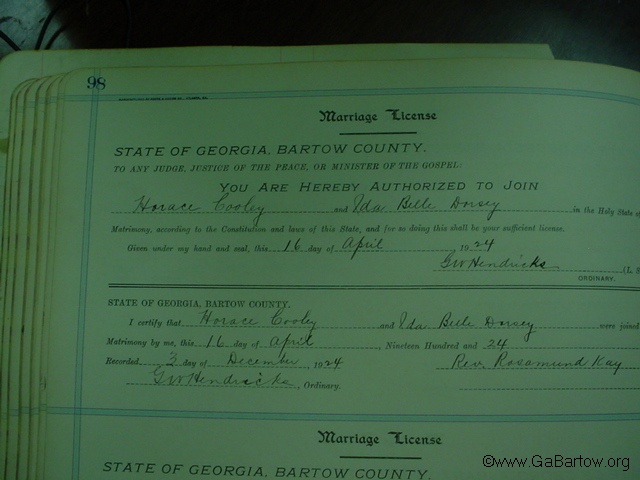 98
Marriage License
STATE OF GEORGIA, BARTOW COUNTY.
TO ANY JUDGE, JUSTICE OF THE PEACE, OR MINISTER OF THE GOSPEL:
YOU ARE HEREBY AUTHORIZED TO JOIN
Horace Cooley and Ida Belle Dorsey in the Holy State of
Matrimony, according to the Constitution and laws of this State, and for so doing this shall be your sufficient license.
Given under my hand and seal, this 16 day of April 1924
GW Hendricks (L.
ORDINARY.
STATE OF GEORGIA, BARTOW COUNTY.
I certify that Horace Cooley and Ida Belle Dorsey were joined
Matrimony by me, this 16 day of April, Nineteen Hundred and 24
Recorded, 3 day of December, 1924 Rev. Rosamund Kay
GW Hendricks, Ordinary.
Marriage License
STATE OF GEORGIA, BARTOW COUNTY.
©www.GaBartow.org